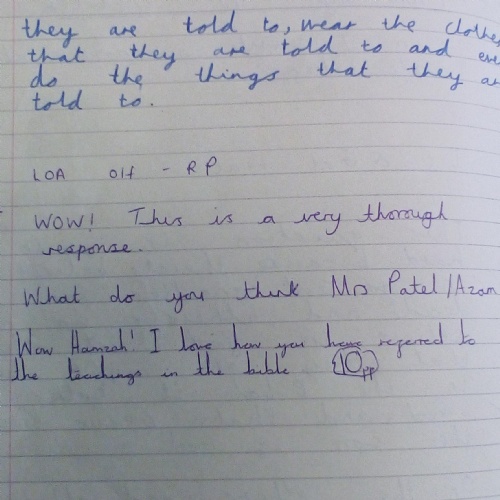 they are told to, wear the clothes
that they are told to and
do the things that they
told to.
LOA O/f - RP
WOW! This is a very thorough
response.
What do you think Mrs Patel/Azam
Wow Hamzah! I love how you have referred to
the teachings in the bible 10pp